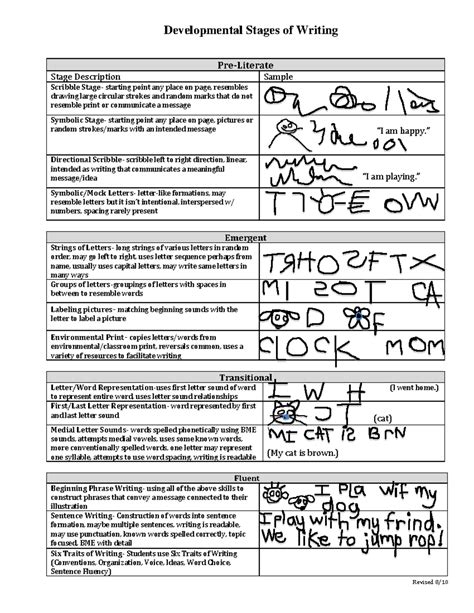 Developmental Stages of Writing
Pre-Literate
Stage Description Sample
Scribble Stage- starting point any place on page, resembles
drawing large circular strokes and random marks that do not
resemble print or communicate a message
Symbolic Stage- starting point any place on page, pictures or
random strokes/marks with an intended message
"I am happy."
Directional Scribble- scribble left to right direction, linear,
intended as writing that communicates a meaningful
message/idea
"I am playing."
Symbolic/Mock Letters- letter-like formations, may
resemble letters but it isn't intentional, interspersed w/
numbers, spacing rarely present
Emergent
Strings of Letters- long strings of various letters in random
order, may go left to right, uses letter sequence perhaps from
name, usually uses capital letters, may write same letters in
many ways
TRHOSFTX
Groups of letters-groupings of letters with spaces in
between to resemble words
MI SOT CA
Labeling pictures- matching beginning sounds with the
letter to label a picture
D F
Environmental Print - copies letters/words from
environmental/classroom print, reversals common, uses a
variety of resources to facilitate writing
CLOCK MOM
Transitional
Letter/Word Representation-uses first letter sound of word
to represent entire word, uses letter sound relationships
I W H (I went home.)
First/Last Letter Representation- word represented by first
and last letter sound
(cat)
Medial Letter Sounds- words spelled phonetically using BME
sounds, attempts medial vowels, uses some known words,
more conventionally spelled words, one letter may represent
one syllable, attempts to use word spacing, writing is readable
MI CAT IS BRN
(My cat is brown.)
Fluent
Beginning Phrase Writing- using all of the above skills to
construct phrases that convey a message connected to their
illustration
I Pla wif my
dog
Sentence Writing- Construction of words into sentence
formation, maybe multiple sentences, writing is readable,
may use punctuation, known words spelled correctly, topic
focused, BME with detail
I play with my frind.
We like to jump rop!
Six Traits of Writing- Students use Six Traits of Writing
(Conventions, Organization, Voice, Ideas, Word Choice,
Sentence Fluency)
Revised 8/10